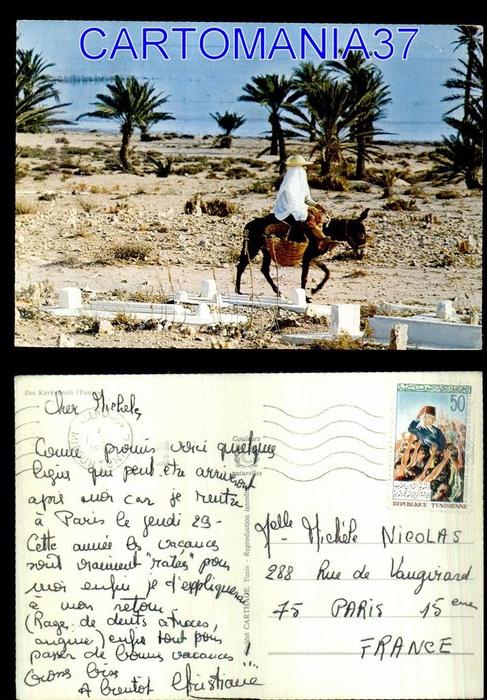 CARTOMANIA37
Iles Kerkennah (Tunisie)
Cher Michele,
Comme promis voici quelque
lignes qui peut être arriveront
après moi car je rentre
à Paris le jeudi 29-
Cette année les vacances
sont vraiment "ratés" pour
moi enfin je t'expliquerai
à mon retour
(Rage de dents atroces,
angine) enfin tout pour
passer de bonnes vacances !!!
Gros bises
A bientot Christiane
Couleurs
naturelles
Société CARTHAGE, Tunis - Reproduction interdite
50
REPUBLIQUE TUNISIENNE
Melle Michèle NICOLAS
288 Rue de Vaugirard
75 PARIS 15 eme
FRANCE